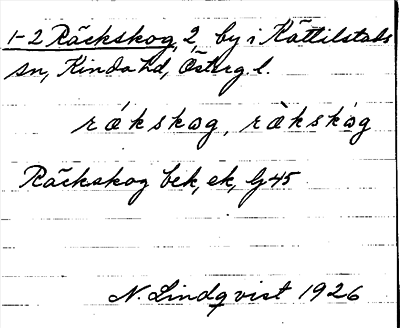 1-2 Räckskog, 2, by i Kättilstads
sn, Kinda hd, Österg. l.
rákskωg, ràkskωg
Räckskog bek, ek, G45
N. Lindqvist 1926